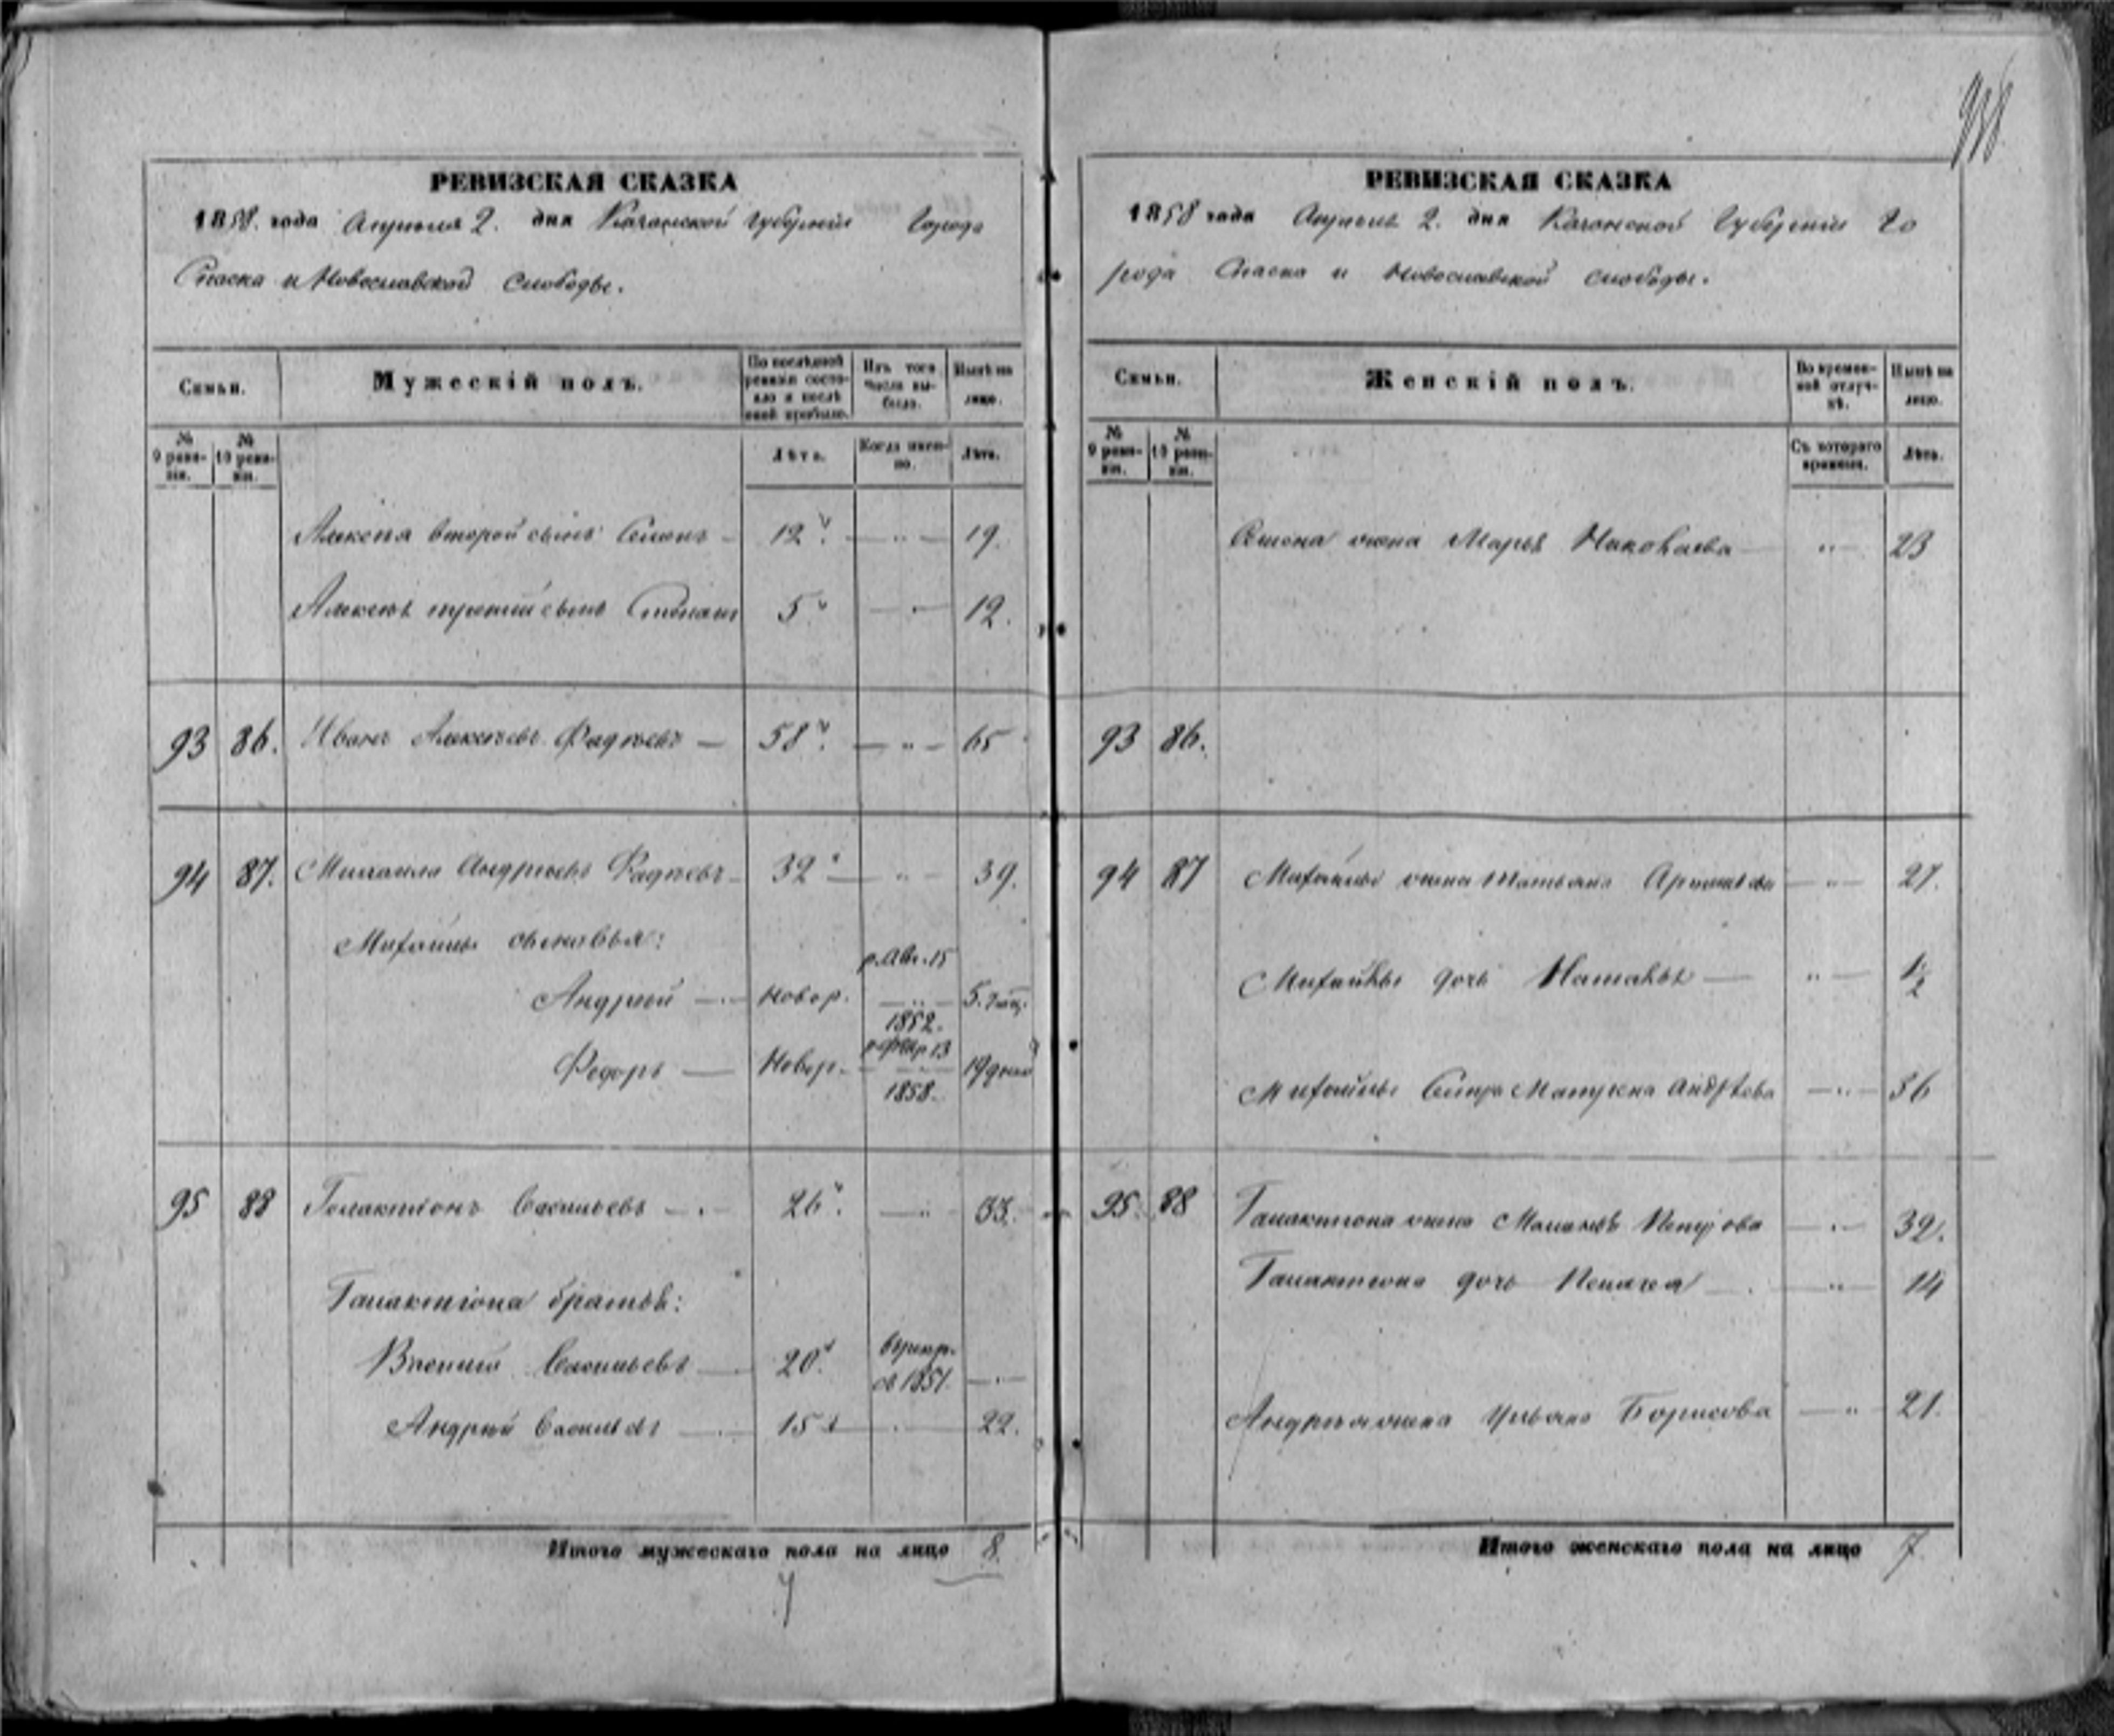 РЕВИЗСКАЯ СКАЗКА
1858. года Апреля 2. дня Казанской Губерніи Города
Спаска и Новоспавской Слободы.
Семьи.
Мужескій полъ.
По послѣдней ревизіи состояло и послѣ оной прибыло.
Изъ того числа выбыло.
Нынѣ на лицо.
№ 9 ревизіи.
№ 10 ревизіи.
Лѣта.
Когда именно.
Лѣта.
Алексѣя второй сынъ Семенъ — 12. — " — 19.
Алексѣя третій сынъ Степанъ 5 — " — 12.
93 86. Иванъ Алексѣевъ Фадѣевъ — 58. — " — 65
94 87. Михаила Андрѣевъ Фадѣевъ 32 — " — 39.
Михайлы сыновья:
р. Авг. 15
Андрей — новор. — " — 5.
1852.
р. Февр 13
Федоръ — Новор. — " — 19 дней
1858.
95 88 Галактіонъ Васильевъ — 26. — " — 33.
Галактіона братья:
Васильевъ — 20. —
въ 1851.
Андрей Васильевъ — 15 — " — 22.
Итого мужескаго пола на лицо 8.
958
РЕВИЗСКАЯ СКАЗКА
1858 года Апреля 2. дня Казанской Губерніи Го
рода Спаска и Новоспавской слободы.
Семьи.
Женскій полъ.
Во временной отлучкѣ.
Нынѣ на лицо.
№ 9 ревизіи.
№ 10 ревизіи.
Съ котораго времени.
Лѣта.
Семена жена Марья Николаева — " — 23
93 86.
94 87 Михайлы жена Татьяна — " — 27.
Михайлы дочь Наталья — " — 1/2
Михайлы Сестра Матрена Андрѣева — " — 36
95. 88 Галактіона жена Петрова — " — 32.
Галактіона дочь Пелагея — " — 14
Андрея жена Ульяна Борисова — " — 21.
Итого женскаго пола на лицо 7.